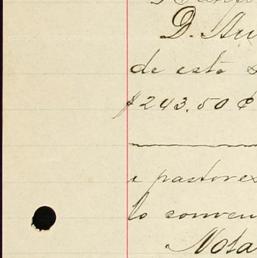 D.
de esto
$243.50 ¢
e pastores
lo conven
Nota